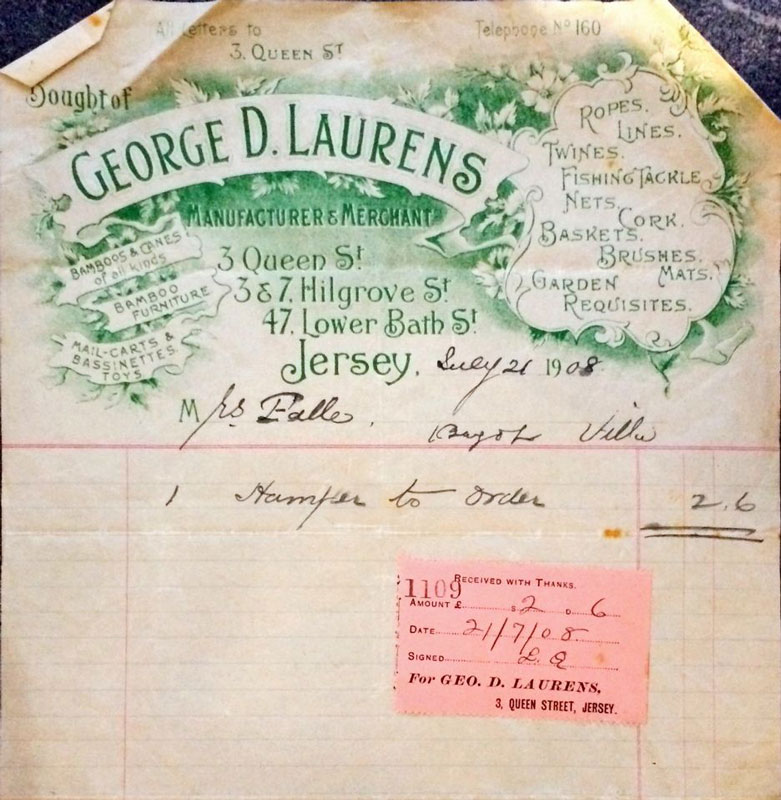 All Letters to
3. QUEEN ST
Telephone No 160
Bought of
GEORGE D. LAURENS
MANUFACTURER & MERCHANT
BAMBOOS & CANES
of all kinds
BAMBOO
FURNITURE
MAIL-CARTS &
BASSINETTES.
TOYS.
3 Queen St
3 & 7, Hilgrove St
47, Lower Bath St
Jersey, July 21 1908
ROPES.
LINES.
TWINES.
FISHING TACKLE
NETS.
CORK.
BASKETS.
BRUSHES.
MATS.
GARDEN
REQUISITES.
Mrs Falle.
Bagot Villa
1 Hamper to order 2.6
1109
RECEIVED WITH THANKS.
AMOUNT £ S 2 D 6
DATE 21/7/08
SIGNED
For GEO. D. LAURENS,
3, QUEEN STREET, JERSEY.